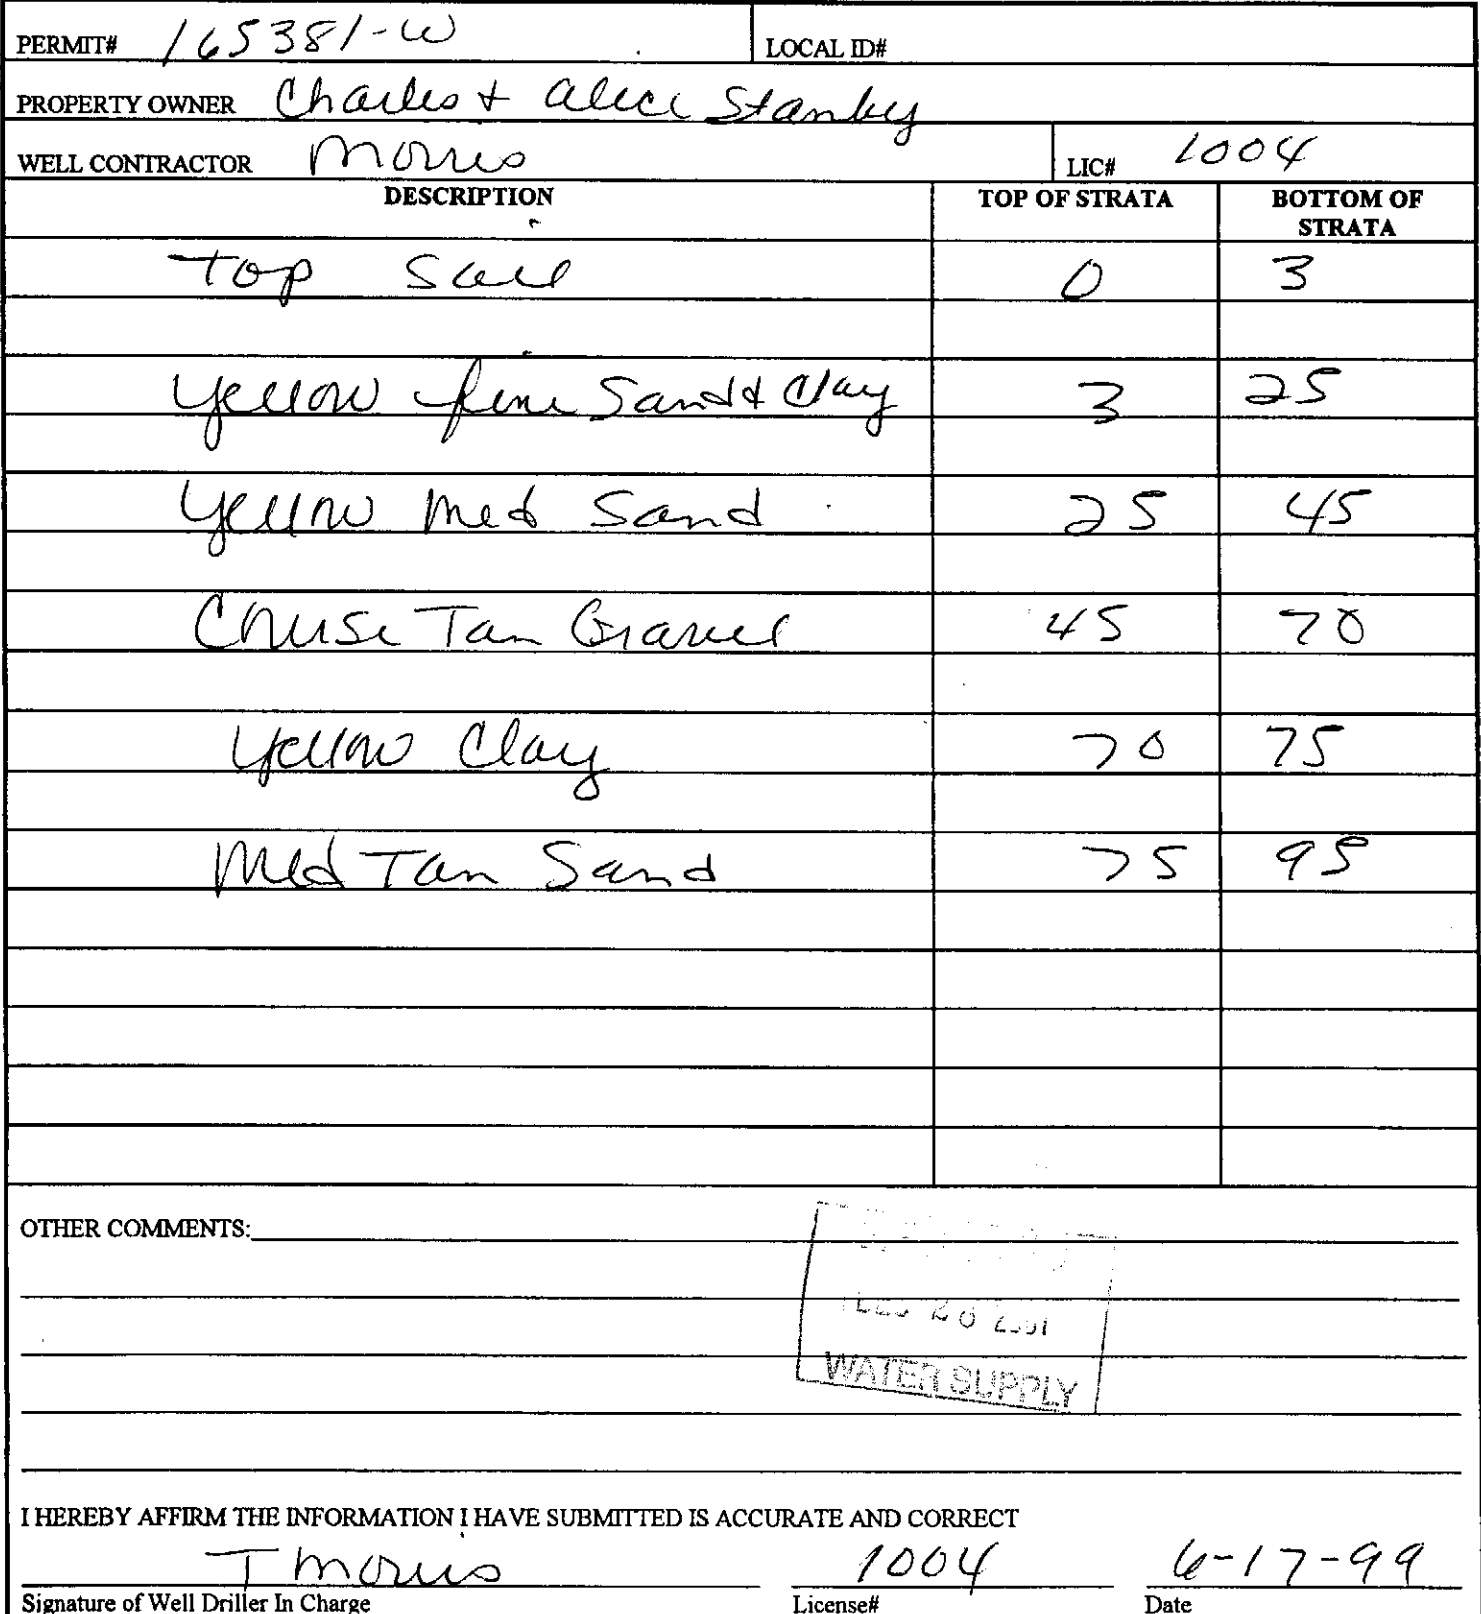 PERMIT# 165381-W LOCAL ID#
PROPERTY OWNER Charles + Alice Stanley
WELL CONTRACTOR Morris LIC# 1004
DESCRIPTION TOP OF STRATA BOTTOM OF STRATA
Top Soil 0 3
Yellow fine Sand & Clay 3 25
Yellow Med Sand 25 45
Course Tan Gravel 45 70
Yellow Clay 70 75
Med Tan Sand 75 95
OTHER COMMENTS:
WATER SUPPLY
I HEREBY AFFIRM THE INFORMATION I HAVE SUBMITTED IS ACCURATE AND CORRECT
T Morris 1004 6-17-99
Signature of Well Driller In Charge License# Date